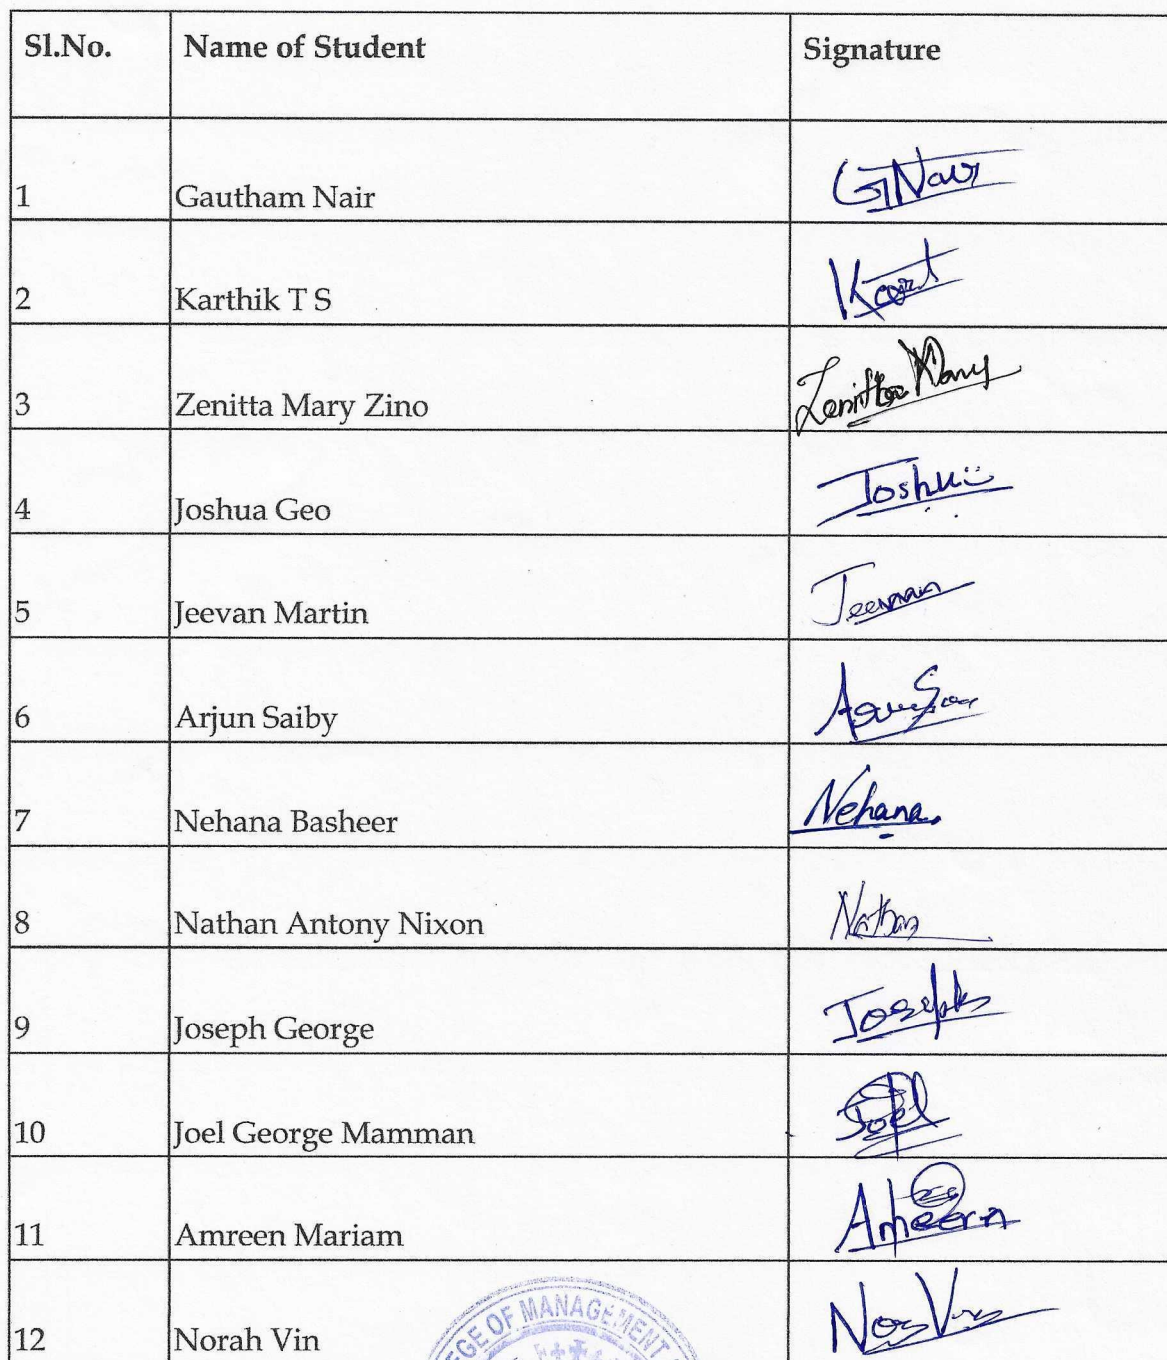 Sl.No. Name of Student Signature
1 Gautham Nair GNair
2 Karthik T S
3 Zenitta Mary Zino Zenitta Mary
4 Joshua Geo
5 Jeevan Martin Jeevan
6 Arjun Saiby
7 Nehana Basheer Nehana
8 Nathan Antony Nixon Nathan
9 Joseph George Joseph
10 Joel George Mamman Joel
11 Amreen Mariam
12 Norah Vin
OF MANAGEMENT